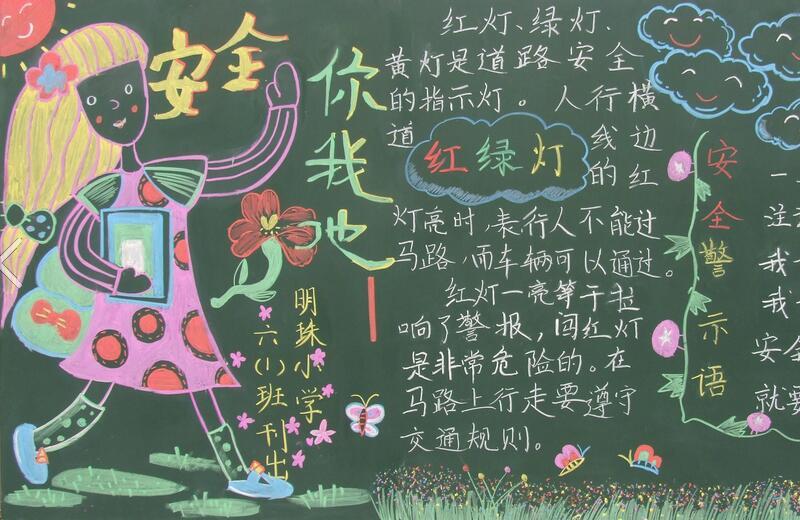 安全
你我他
明珠小学
六(1)班刊出
红灯、绿灯、
黄灯是道路安全
的指示灯。人行横
道
红绿灯
线边
的红
灯亮时,表行人不能过
马路,而车辆可以通过。
红灯一亮等于拉
响了警报,闯红灯
是非常危险的。在
马路上行走要遵守
交通规则。
安全警示语
一
注
我
我
安全
就要